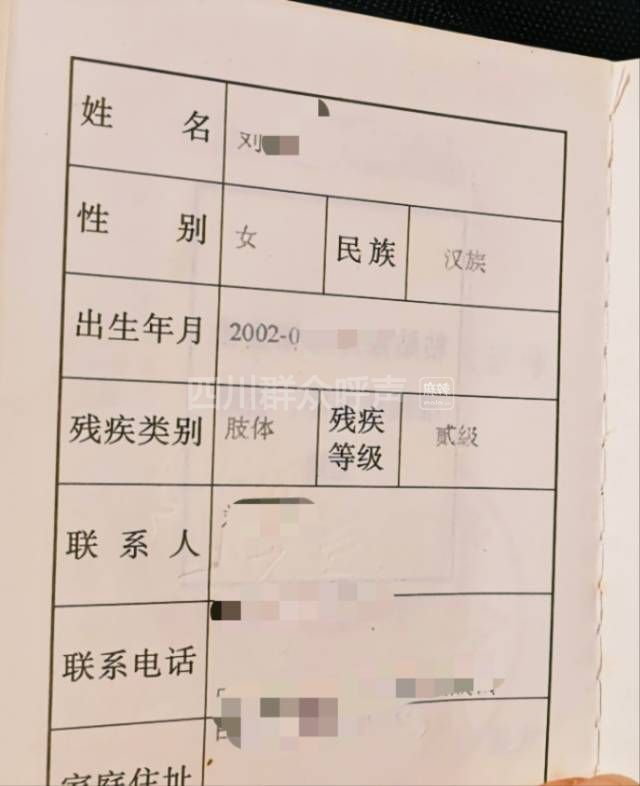 姓名 刘
性别 女 民族 汉族
出生年月 2002-0
残疾类别 肢体 残疾等级 贰级
四川群众呼声 麻辣
联系人
联系电话
家庭住址